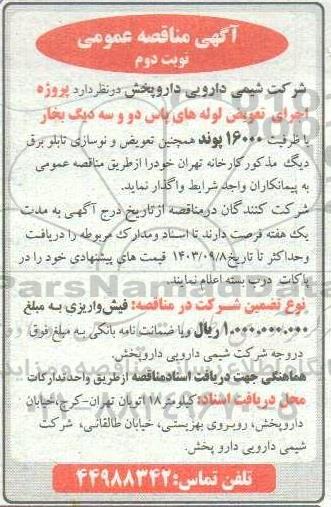 آگهی مناقصه عمومی
نوبت دوم
شرکت شیمی دارویی داروپخش درنظردارد پروژه
اجرای تعویض لوله های پاس دو و سه دیگ بخار
با ظرفیت ۱۶۰۰۰ پوند همچنین تعویض و نوسازی تابلو برق
دیگ مذکور کارخانه تهران خودرا ازطریق مناقصه عمومی
به پیمانکاران واجد شرایط واگذار نماید.
شرکت کنندگان درمناقصه ازتاریخ درج آگهی به مدت
یک هفته فرصت دارند تا اسناد ومدارک مربوطه را دریافت
وحداکثر تا تاریخ ۱۴۰۳/۰۹/۸ قیمت های پیشنهادی خود را در
پاکات درب بسته اعلام نمایند.
نوع تضمین شرکت در مناقصه: فیش واریزی به مبلغ
۱.۰۰۰.۰۰۰.۰۰۰ ریال ویا ضمانت نامه بانکی به مبلغ فوق
دروجه شرکت شیمی دارویی داروپخش.
هماهنگی جهت دریافت اسنادمناقصه ازطریق واحدتدارکات
محل دریافت اسناد: کیلومتر ۱۸ اتوبان تهران-کرج،خیابان
داروپخش، روبروی بهزیستی، خیابان طالقانی، شرکت
شیمی دارویی دارو پخش.
تلفن تماس: ۴۴۹۸۸۳۴۲